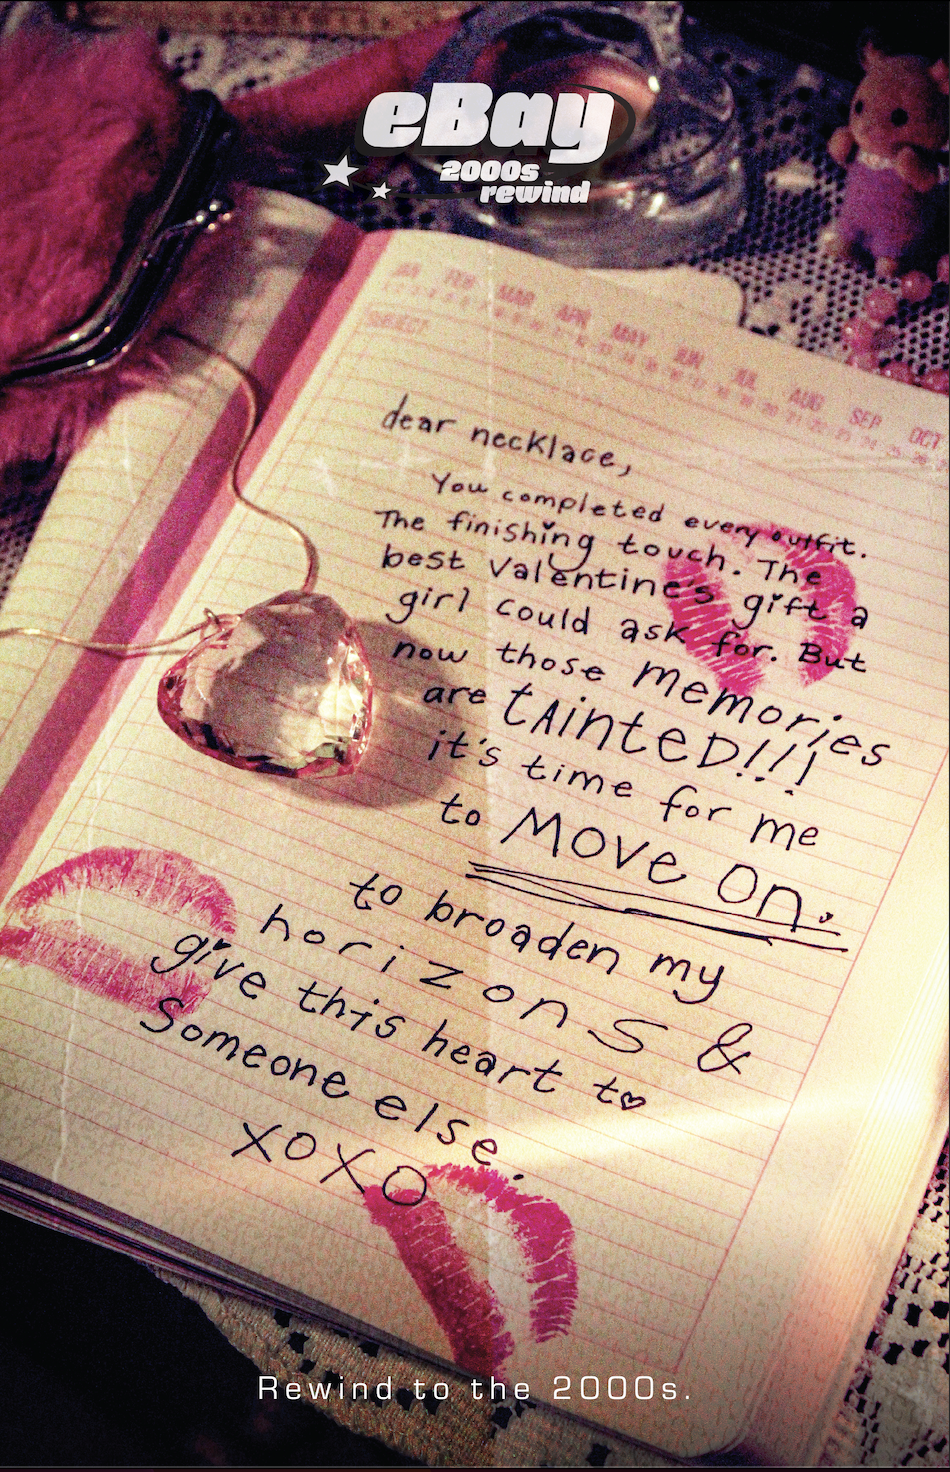 eBay
2000s
rewind
JAN FEB MAR APR MAY JUN JUL AUG SEP OCT
SUBJECT:
dear necklace,
You completed every outfit.
The finishing touch. The
best Valentine's gift a
girl could ask for. But
now those memories
are tAinteD!!!
it's time for me
to MOVe On.
to broaden my
horizons &
give this heart to
Someone else.
XOXO
Rewind to the 2000s.